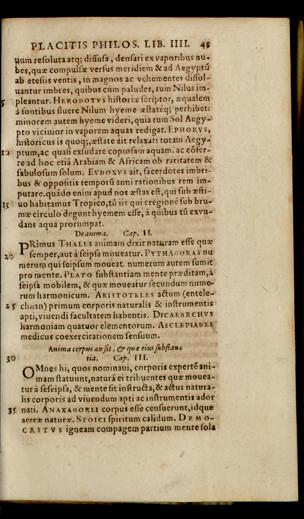 PLACITIS PHILOS. LIB. IIII. 45
uum resoluta atq; diffusa, densari ex vaporibus nu-
bes, quæ compulsæ versus meridiem & ad Aegyptũ
ab etesiis ventis, in magnos ac vehementes dissol-
uantur imbres, quibus cum paludes, tum Nilus im-
5 pleantur. HERODOTVS historiæ scriptor, æqualem
à fontibus fluere Nilum hyeme æstateq; perhibet:
minorem autem hyeme videri, quia tum Sol Aegy-
pto vicinior in vaporem aquas redigat. EPHORVS,
historicus is quoq;, æstate ait relaxari totam Aegy-
10 ptum, ac quasi exsudare copiosam aquam. ac cōfer-
re ad hoc etiā Arabiam & Africam ob raritatem &
sabulosum solum. EVDOXVS ait, sacerdotes imbri-
bus & oppositis temporū anti rationibus rem im-
putare. quādo enim apud nos æstas est, qui sub æsti-
15 uo habitamus Tropico, tū iis qui è regione sub bru-
mæ circulo degunt hyemem esse, à quibus tū exun-
dans aqua prorumpat.
De anima. Cap. II.
PRimus THALES animam dixit naturam esse quæ
20 semper, aut à seipsa moueatur. PYTHAGORAS nu-
merum qui seipsum moueat. numerum autem sumit
pro mente. PLATO substantiam mente præditam, à
seipsa mobilem, & quæ moueatur secundum nume-
rum harmonicum. ARISTOTELES actum (entele-
25 chian) primum corporis naturalis & instrumentis
apti, viuendi facultatem habentis. DICAEARCHVS
harmoniam quatuor elementorum. ASCLEPIADES
medicus coexercitationem sensuum.
Anima corpus an sit, & quæ eius substan-
30 tia. Cap. III.
OMnes hi, quos nominaui, corporis expertē ani-
mam statuunt, naturā ei tribuentes quæ mouea-
tur à seseipsa, & mente sit instructa, & actus natura-
lis corporis ad viuendum apti ac instrumentis ador
35 nati. ANAXAGOREI corpus esse censuerunt, idque
aereæ naturæ. STOICI spiritum calidum. DEMO-
CRITVS igneam compagem partium mente sola